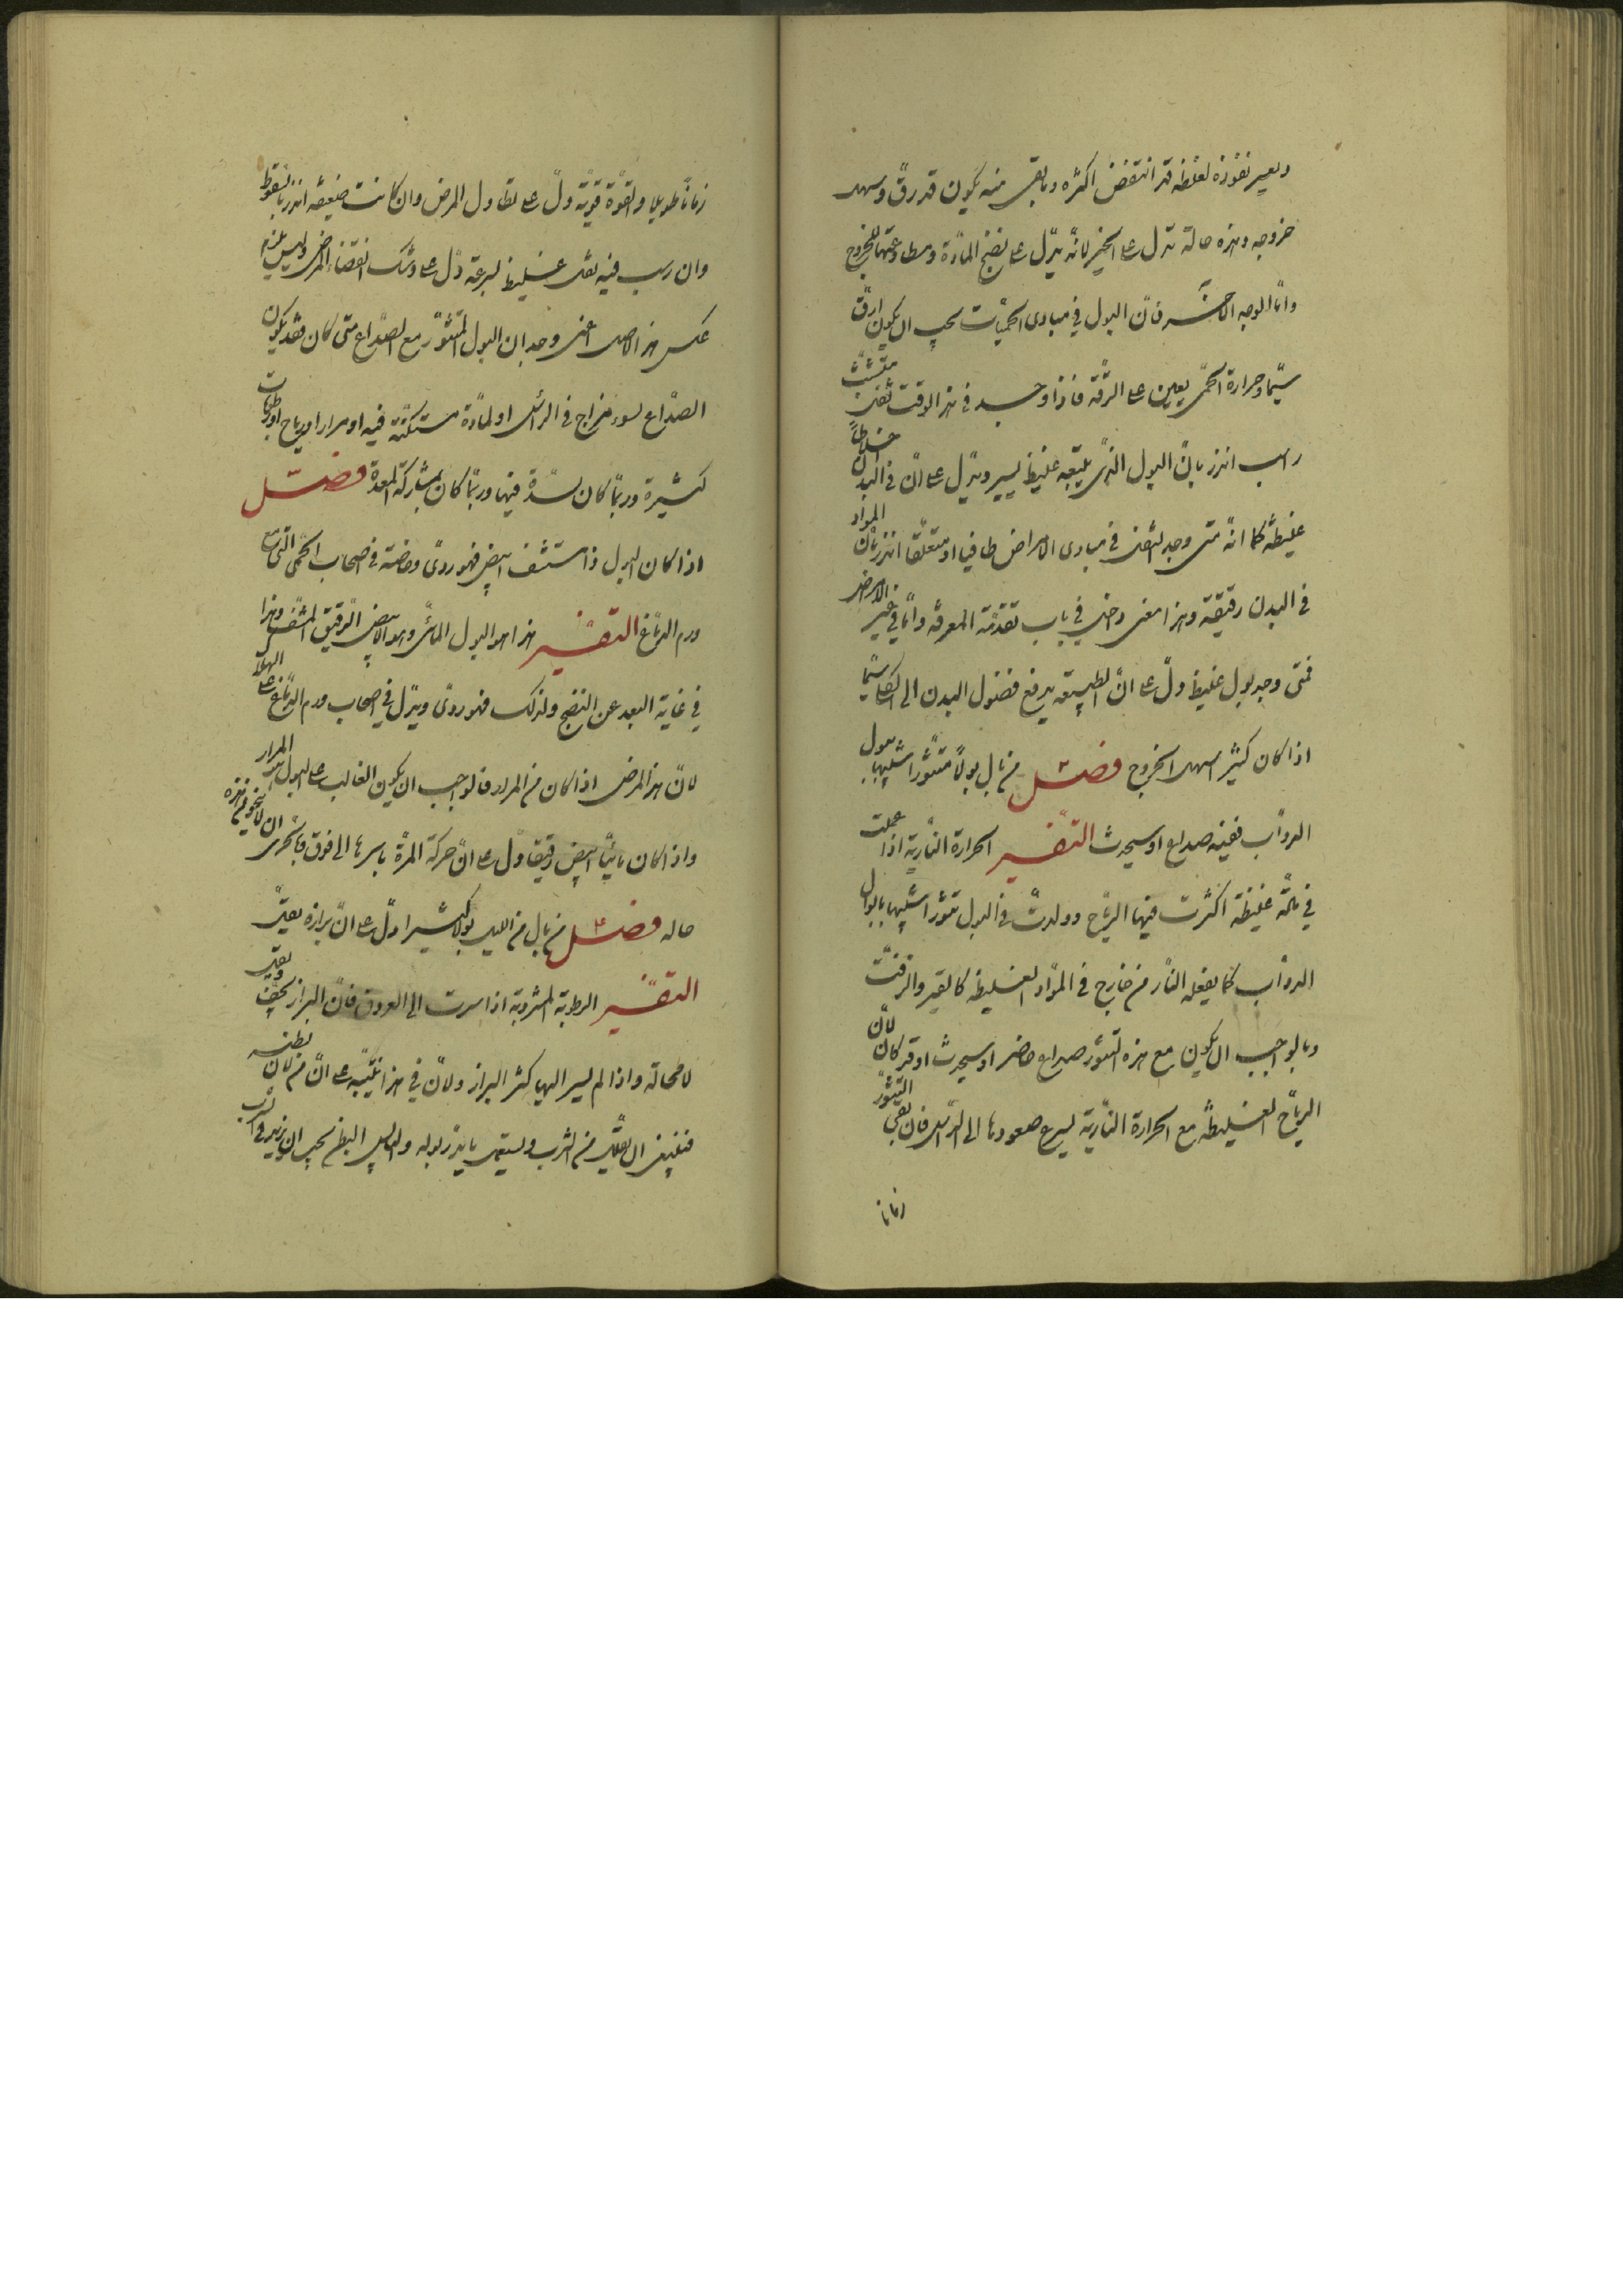 ويعسر نفوذه لغلظه قد انتفض اكثره وما بقى منه يكون قد رقّ وسهل
خروجه وهذه حالة تدل على الخير لانّه يدّل على نضج المادّة ومطاوعتها للخروج
وامّا الوجه الاخر فانّ البول فى مبادى الحميّات يجب ان يكون ارقّ
سيّما وحرارة الحمّى يعين على الرقّة فاذا وجد فى هذا الوقت ثفل متشتّت
راسب انذر بانّ البول الذى يتبعه غليظ يسير ويدّل على انّ فى البدن اخلاطاً
غليظة كما انّه متى وجد الثفل فى مبادى الامراض طافيا او متعلّقا انذر بانّ المواد
فى البدن رقيقة وهذا معنى دخل فى باب تقدمة المعرفة وامّا فى غير الامراض
فمتى وجد بول غليظ دلّ على انّ الطبيعة يدفع فضول البدن الى الكلى سيّما
اذا كان كثيرا سهل الخروج فصل من بال بولاً متثوّرا شبيها ببول
الدوآب ففيه صداع او سيحدث التفسير الحرارة الناريّة اذا عملت
فى مادّة غليظة اكثرت فيها الريّاح وولدت فى البول تثوّرا شبيها بابوال
الدوآب كما يفعله النّار من خارج فى الموّاد الغليظة كالقير والزفت
وبالواجب ان يكون مع هذه التثوّر صداع حاضر او سيحدث او قد كان لانّ
الريّاح الغليظة مع الحرارة الناريّة يسرع صعودها الى الرّاس فان بقى التثوّر
زمانا
زماناً طويلا والقوّة قويّة دلّ على تطاول المرض وان كانت ضعيفة انذر بالسقوط
وان رسب فيه ثفل غليظ بسرعة دّل على وشك انقضاء المرض وليس يلزم
عكس هذا الاصل اعنى وجدان البول المتثوّر مع الصّداع متى كان فقد يكون
الصدّاع لسوء مزاج فى الرّاس او لمادّة مستكنّة فيه او مرار او رياح او رطوبات
كثيرة وربّما كان لسدّة فيها وربّما كان بمشاركة المعدة فصل
اذا كان البول ذا مستشف ابيض فهو ردىّ وخاصّة فى اصحاب الحمّى التى مع
ورم الدّماغ التفسير هذا هو البول المائىّ وهو الابيض الرّقيق المشفّ وهذا
فى غاية البعد عن النضج ولذلك فهو ردىّ ويدّل فى اصحاب ورم الدّماغ على الهلاك
لانّ هذا المرض اذا كان من المرار فالواجب ان يكون الغالب على البول المرار
واذا كان مائيّا ابيض رقيقا دّل على انّ حركة المرّة باسرها الى فوق فبالحرى ان لا ينجو من هذه
حاله فصل من بال من الليل بولا كثيرا دّل على انّ برازه يقلّ
التفسير الرطوبة المشروبة اذا سرت الى العروق فانّ البراز يجفّ ويقلّ
لا محالة واذا لم يسر اليها كثر البراز ولانّ فى هذا تنبّيه على انّ من لان بطنه
فينبغى ان يقلّل من الشرب ويستعمل ما يدرّ بوله واليابس البطن يجب ان يزيد فى الشراب